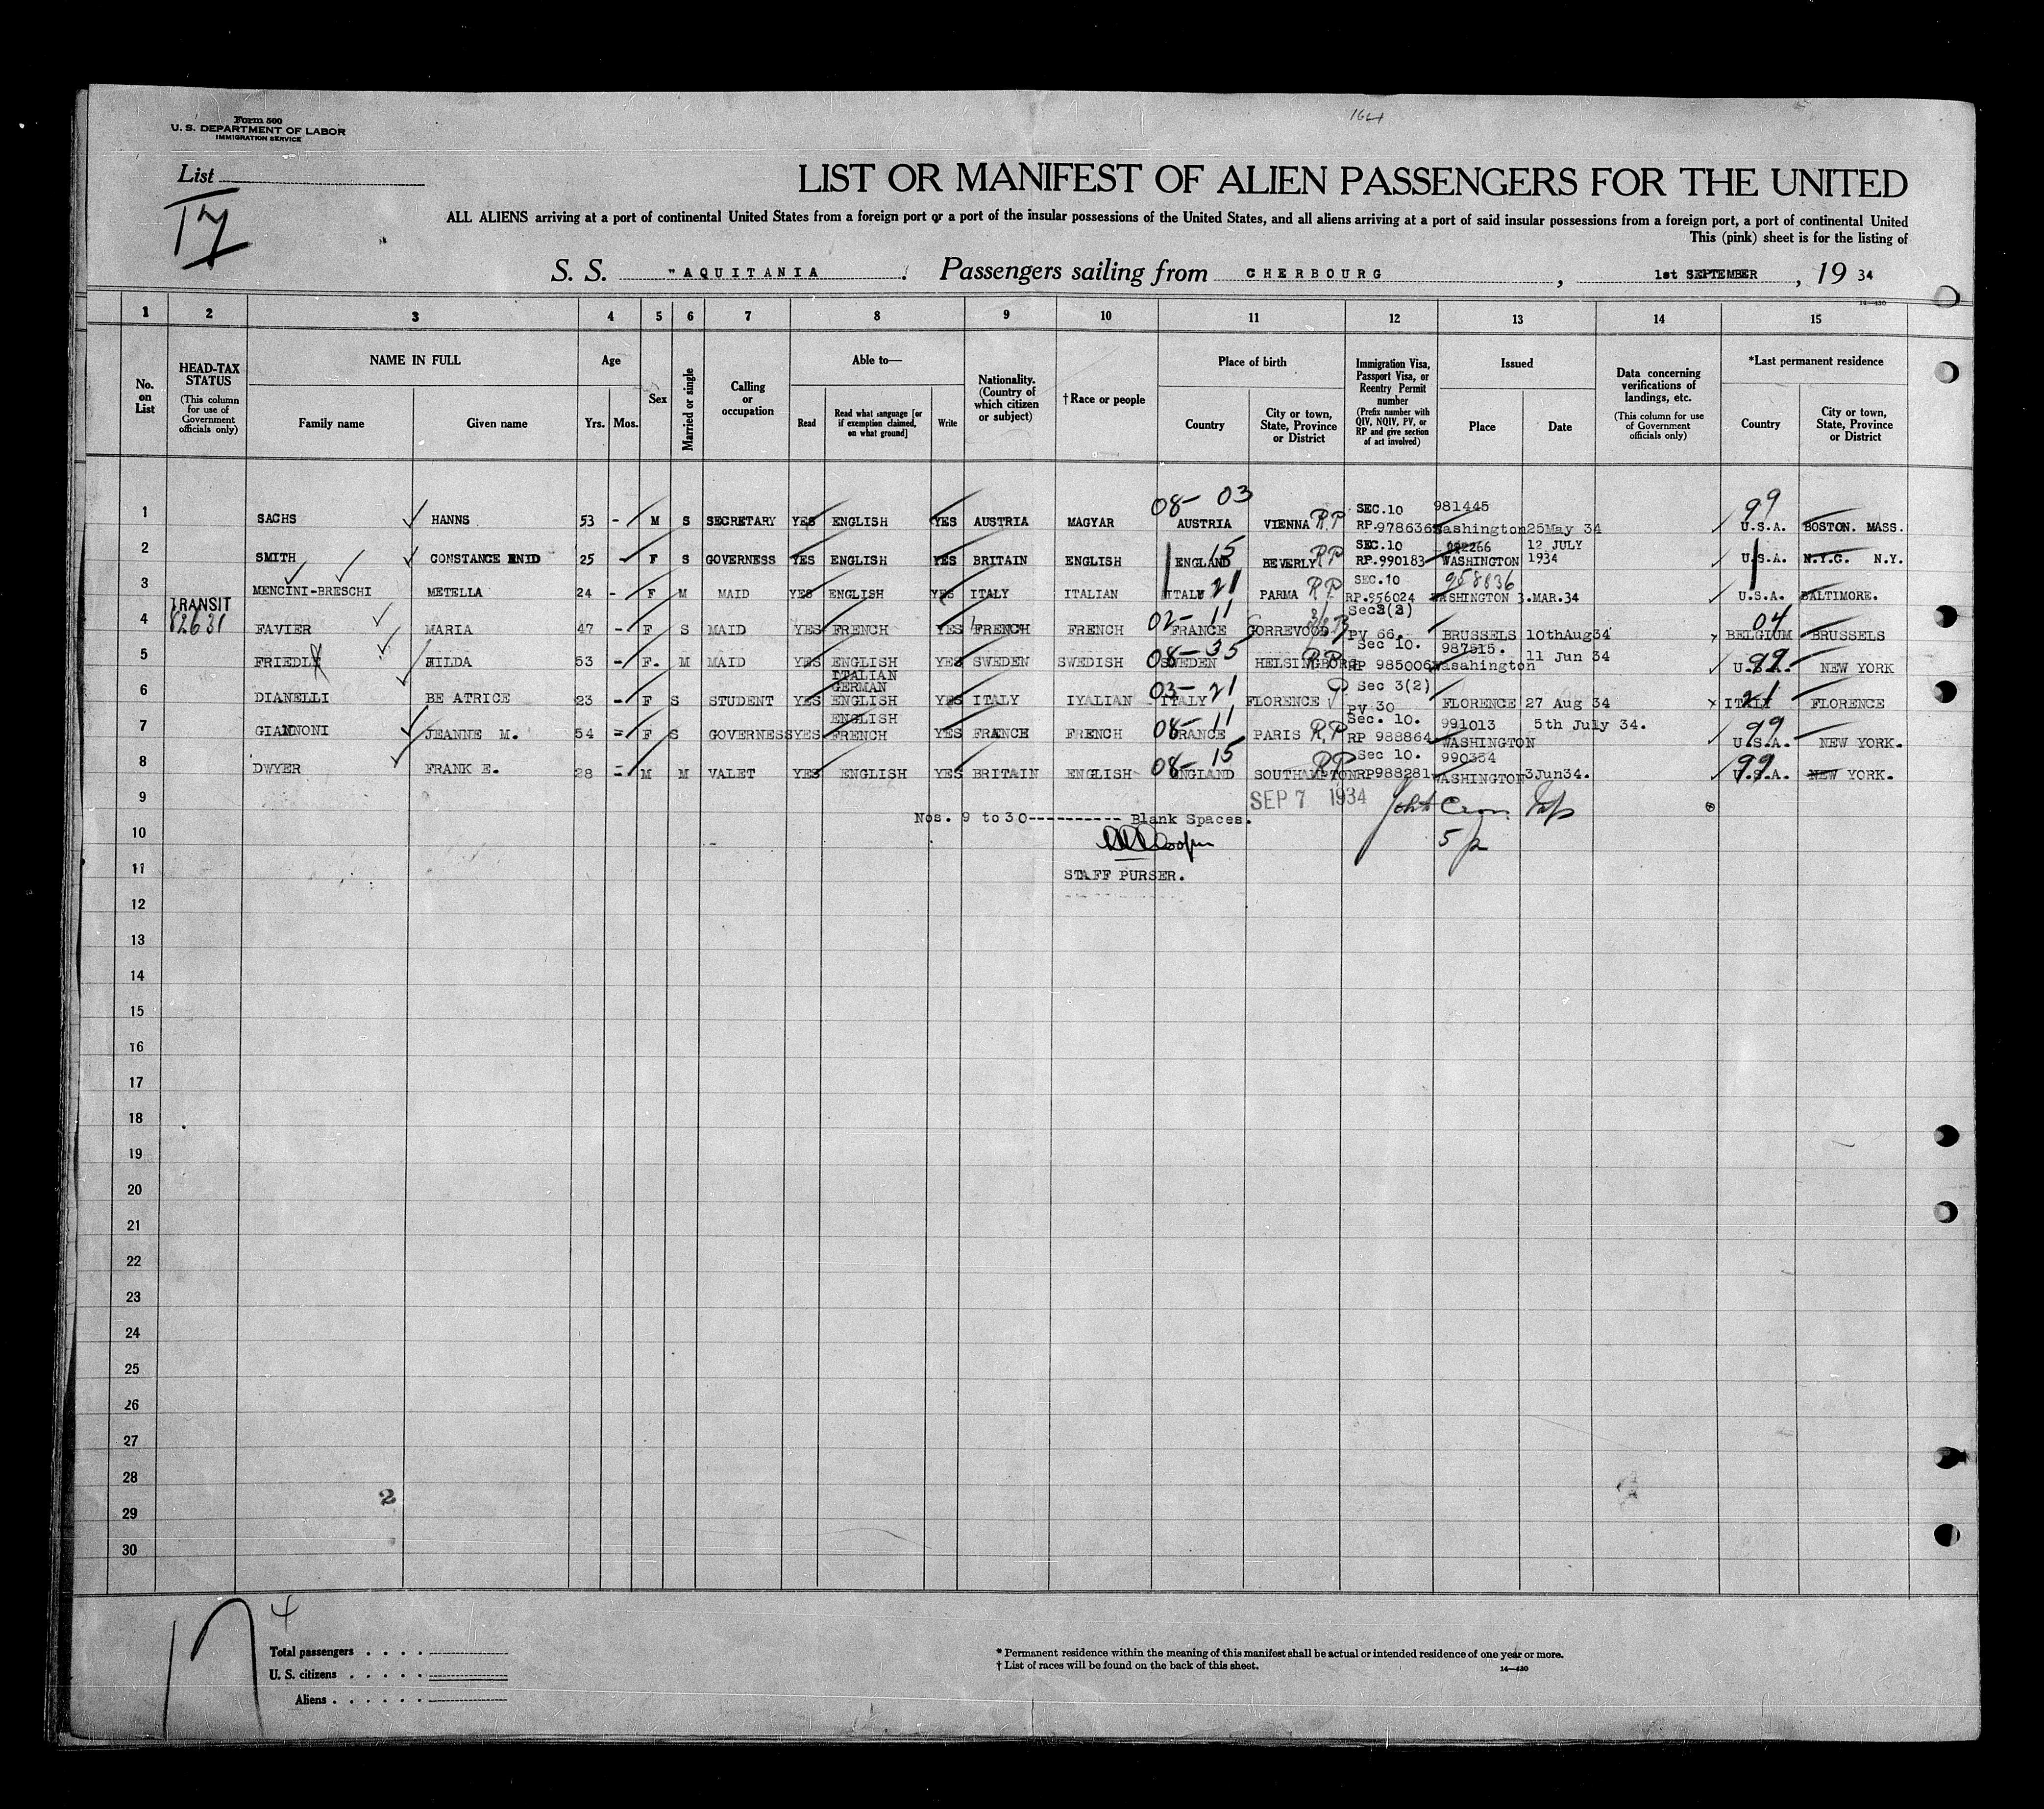 164
Form 500
U. S. DEPARTMENT OF LABOR
IMMIGRATION SERVICE
List
17
LIST OR MANIFEST OF ALIEN PASSENGERS FOR THE UNITED
ALL ALIENS arriving at a port of continental United States from a foreign port or a port of the insular possessions of the United States, and all aliens arriving at a port of said insular possessions from a foreign port, a port of continental United
This (pink) sheet is for the listing of
S. S. "AQUITANIA Passengers sailing from CHERBOURG, 1st SEPTEMBER, 19 34
14—430
1 2 3 4 5 6 7 8 9 10 11 12 13 14 15
No. on List
HEAD-TAX STATUS (This column for use of Government officials only)
NAME IN FULL
Family name Given name
Age
Yrs. Mos.
Sex
Married or single
Calling or occupation
Able to—
Read Read what language [or if exemption claimed, on what ground] Write
Nationality. (Country of which citizen or subject)
†Race or people
Place of birth
Country City or town, State, Province or District
Immigration Visa, Passport Visa, or Reentry Permit number (Prefix number with QIV, NQIV, PV, or RP and give section of act involved)
Issued
Place Date
Data concerning verifications of landings, etc. (This column for use of Government officials only)
*Last permanent residence
Country City or town, State, Province or District
08- 03 SEC.10 981445 99
1 SACHS HANNS 53 - M S SECRETARY YES ENGLISH YES AUSTRIA MAGYAR AUSTRIA VIENNA R.P RP.978636 Washington 25May 34 U.S.A. BOSTON. MASS.
15 SEC.10 12 JULY
2 SMITH CONSTANCE ENID 25 F S GOVERNESS YES ENGLISH YES BRITAIN ENGLISH ENGLAND BEVERLY RP RP.990183 WASHINGTON 1934 U.S.A. N.Y.C. N.Y.
21 SEC.10 958836
3 MENCINI-BRESCHI METELLA 24 - F M MAID YES ENGLISH YES ITALY ITALIAN ITALY PARMA RP RP.956024 WASHINGTON 3.MAR.34 U.S.A. BALTIMORE.
TRANSIT 02-11 04
4 82631 FAVIER MARIA 47 - F S MAID YES FRENCH YES FRENCH FRENCH FRANCE GORREVOOD PV 66. BRUSSELS 10thAug34 BELGIUM BRUSSELS
08-35 Sec 10. 987515. 99
5 FRIEDLY HILDA 53 - F. M MAID YES ENGLISH YES SWEDEN SWEDISH SWEDEN HELSINGBORG RP RP 985006 Wasahington 11 Jun 34 U.S.A. NEW YORK
ITALIAN
GERMAN 03-21 Sec 3(2) 21
6 DIANELLI BE ATRICE 23 - F S STUDENT YES ENGLISH YES ITALY IYALIAN ITALY FLORENCE PV 30 FLORENCE 27 Aug 34 ITALY FLORENCE
ENGLISH 08-11 Sec. 10. 991013 99
7 GIANNONI JEANNE M. 54 - F S GOVERNESS YES FRENCH YES FRANCE FRENCH FRANCE PARIS R.P RP 988864 WASHINGTON 5th July 34. U.S.A. NEW YORK.
08-15 Sec 10. 990354 99
8 DWYER FRANK E. 28 - M M VALET YES ENGLISH YES BRITAIN ENGLISH ENGLAND SOUTHAMPTON RP RP988281 WASHINGTON 3Jun34. U.S.A. NEW YORK.
9 SEP 7 1934
Nos. 9 to 30---------- Blank Spaces.
10
11 STAFF PURSER.
12
13
14
15
16
17
18
19
20
21
22
23
24
25
26
27
28
2
29
30
17 4
Total passengers
U. S. citizens
Aliens
* Permanent residence within the meaning of this manifest shall be actual or intended residence of one year or more.
† List of races will be found on the back of this sheet.
14—430